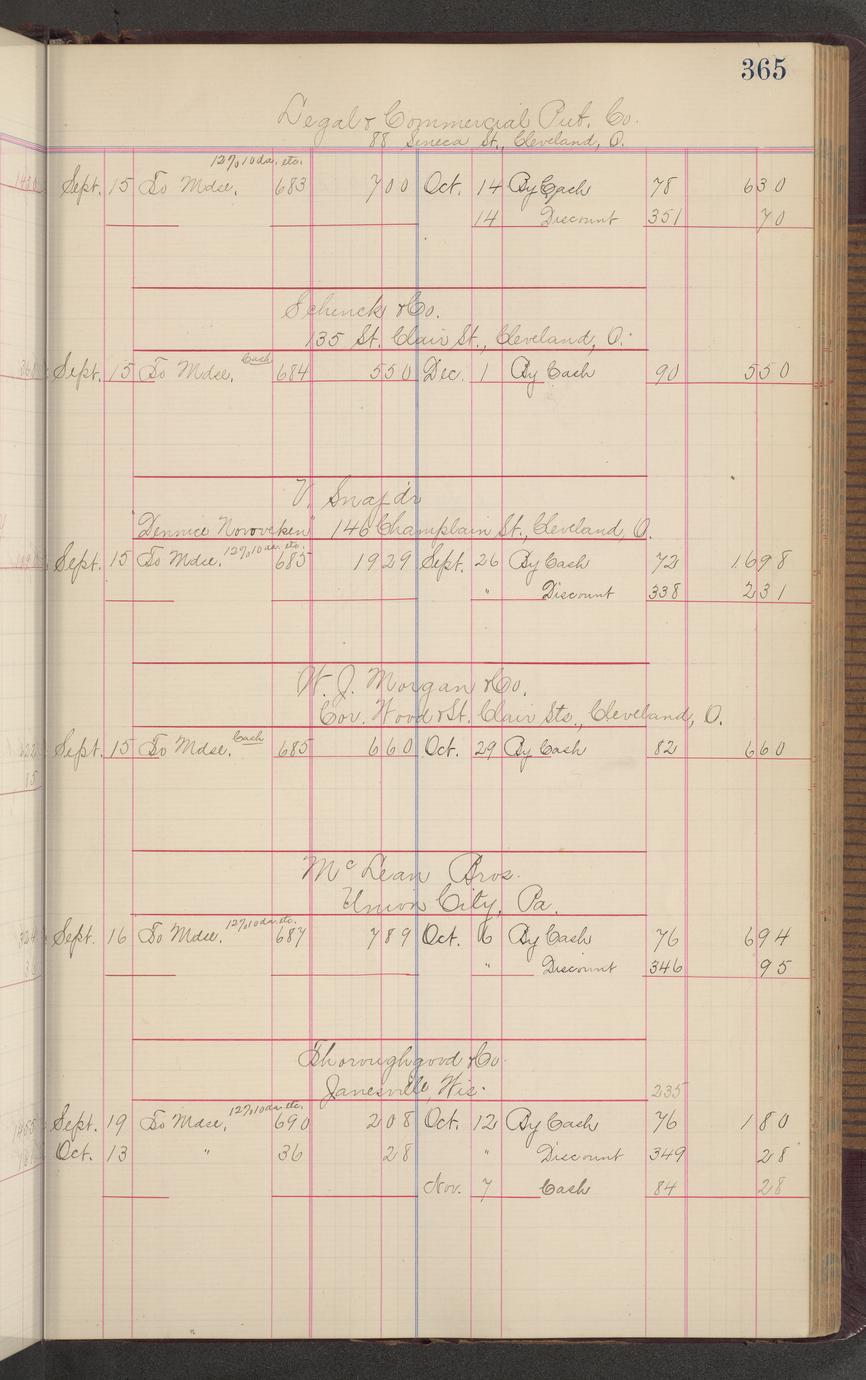 365
Legal & Commercial Pub. Co.
88 Seneca St., Cleveland, O.
12% 10 da. etc.
Sept. 15 To Mdse. 683 700 Oct. 14 By Cash 78 630
14 Discount 351 70
Schenck & Co.
135 St. Clair St., Cleveland, O.
Sept. 15 To Mdse. Cash 684 550 Dec. 1 By Cash 90 550
V. Snajdr
"Dennice Novoveku" 146 Champlain St., Cleveland, O.
Sept. 15 To Mdse. 12% 10 da. etc. 685 1929 Sept. 26 By Cash 72 1698
" Discount 338 231
W. J. Morgan & Co.
Cor. Wood & St. Clair Sts., Cleveland, O.
Sept. 15 To Mdse. Cash 685 660 Oct. 29 By Cash 82 660
McLean Bros.
Union City, Pa.
Sept. 16 To Mdse. 12% 10 da. etc. 687 789 Oct. 6 By Cash 76 694
" Discount 346 95
Thoroughgood & Co.
Janesville, Wis. 235
Sept. 19 To Mdse. 12% 10 da. etc. 690 208 Oct. 12 By Cash 76 180
Oct. 13 " 36 28 " Discount 349 28
Nov. 7 Cash 84 28